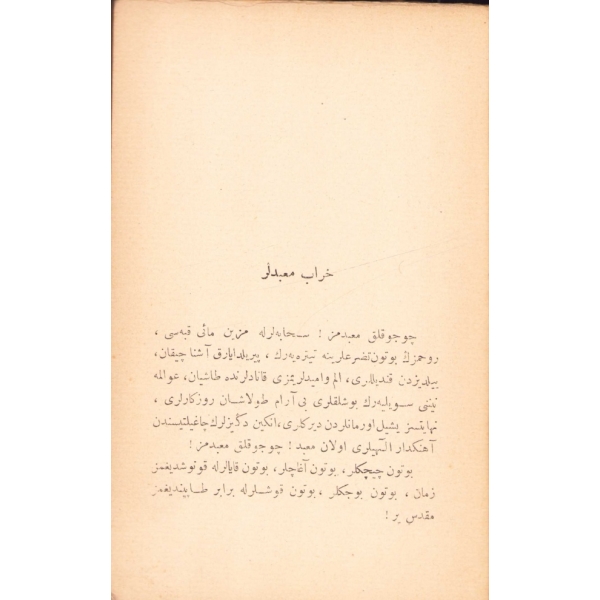 خراب معبدلر
چوجوقلق معبدمز ! سـحابەلرله مزين مائی قبەسی ،
روحمزڭ بوتون تضرعلرينه تيترەيەرك ، پيريلدايارق آشنا چيقان،
ييلديزدن قنديللری، الم واميدلريمزی قانادلرنده طاشيان، عوالمه
نينی سـويليەرك بوشلقلری بی آرام طولاشـان روزكارلری ،
نهايتسز يشيل اورمانلردن ديركلری ، انكين دڭيزلرڭ چاغيلتيسندن
آهنكدار الـٓهيلری اولان معبد ! چوجوقلق معبدمز !
بوتون چيچكلر، بوتون آغاچلر، بوتون قايالرله قونوشديغمز
زمان ، بوتون بوجكلر ، بوتون قوشـلرله برابر طـاپينديغمز
مقدس ير !